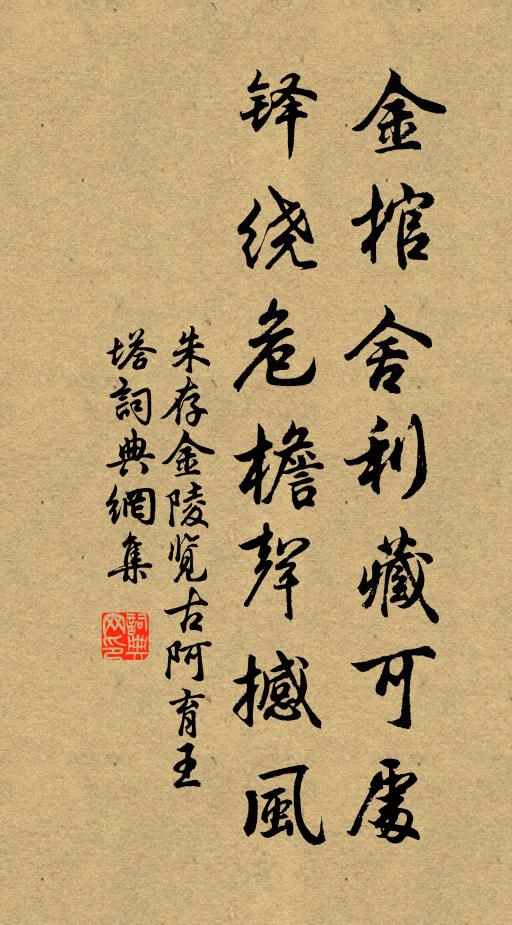 金棺舍利藏可處
铎绕危檐聲撼風
朱存金陵览古阿育王
塔詞典網集
詞典
网印